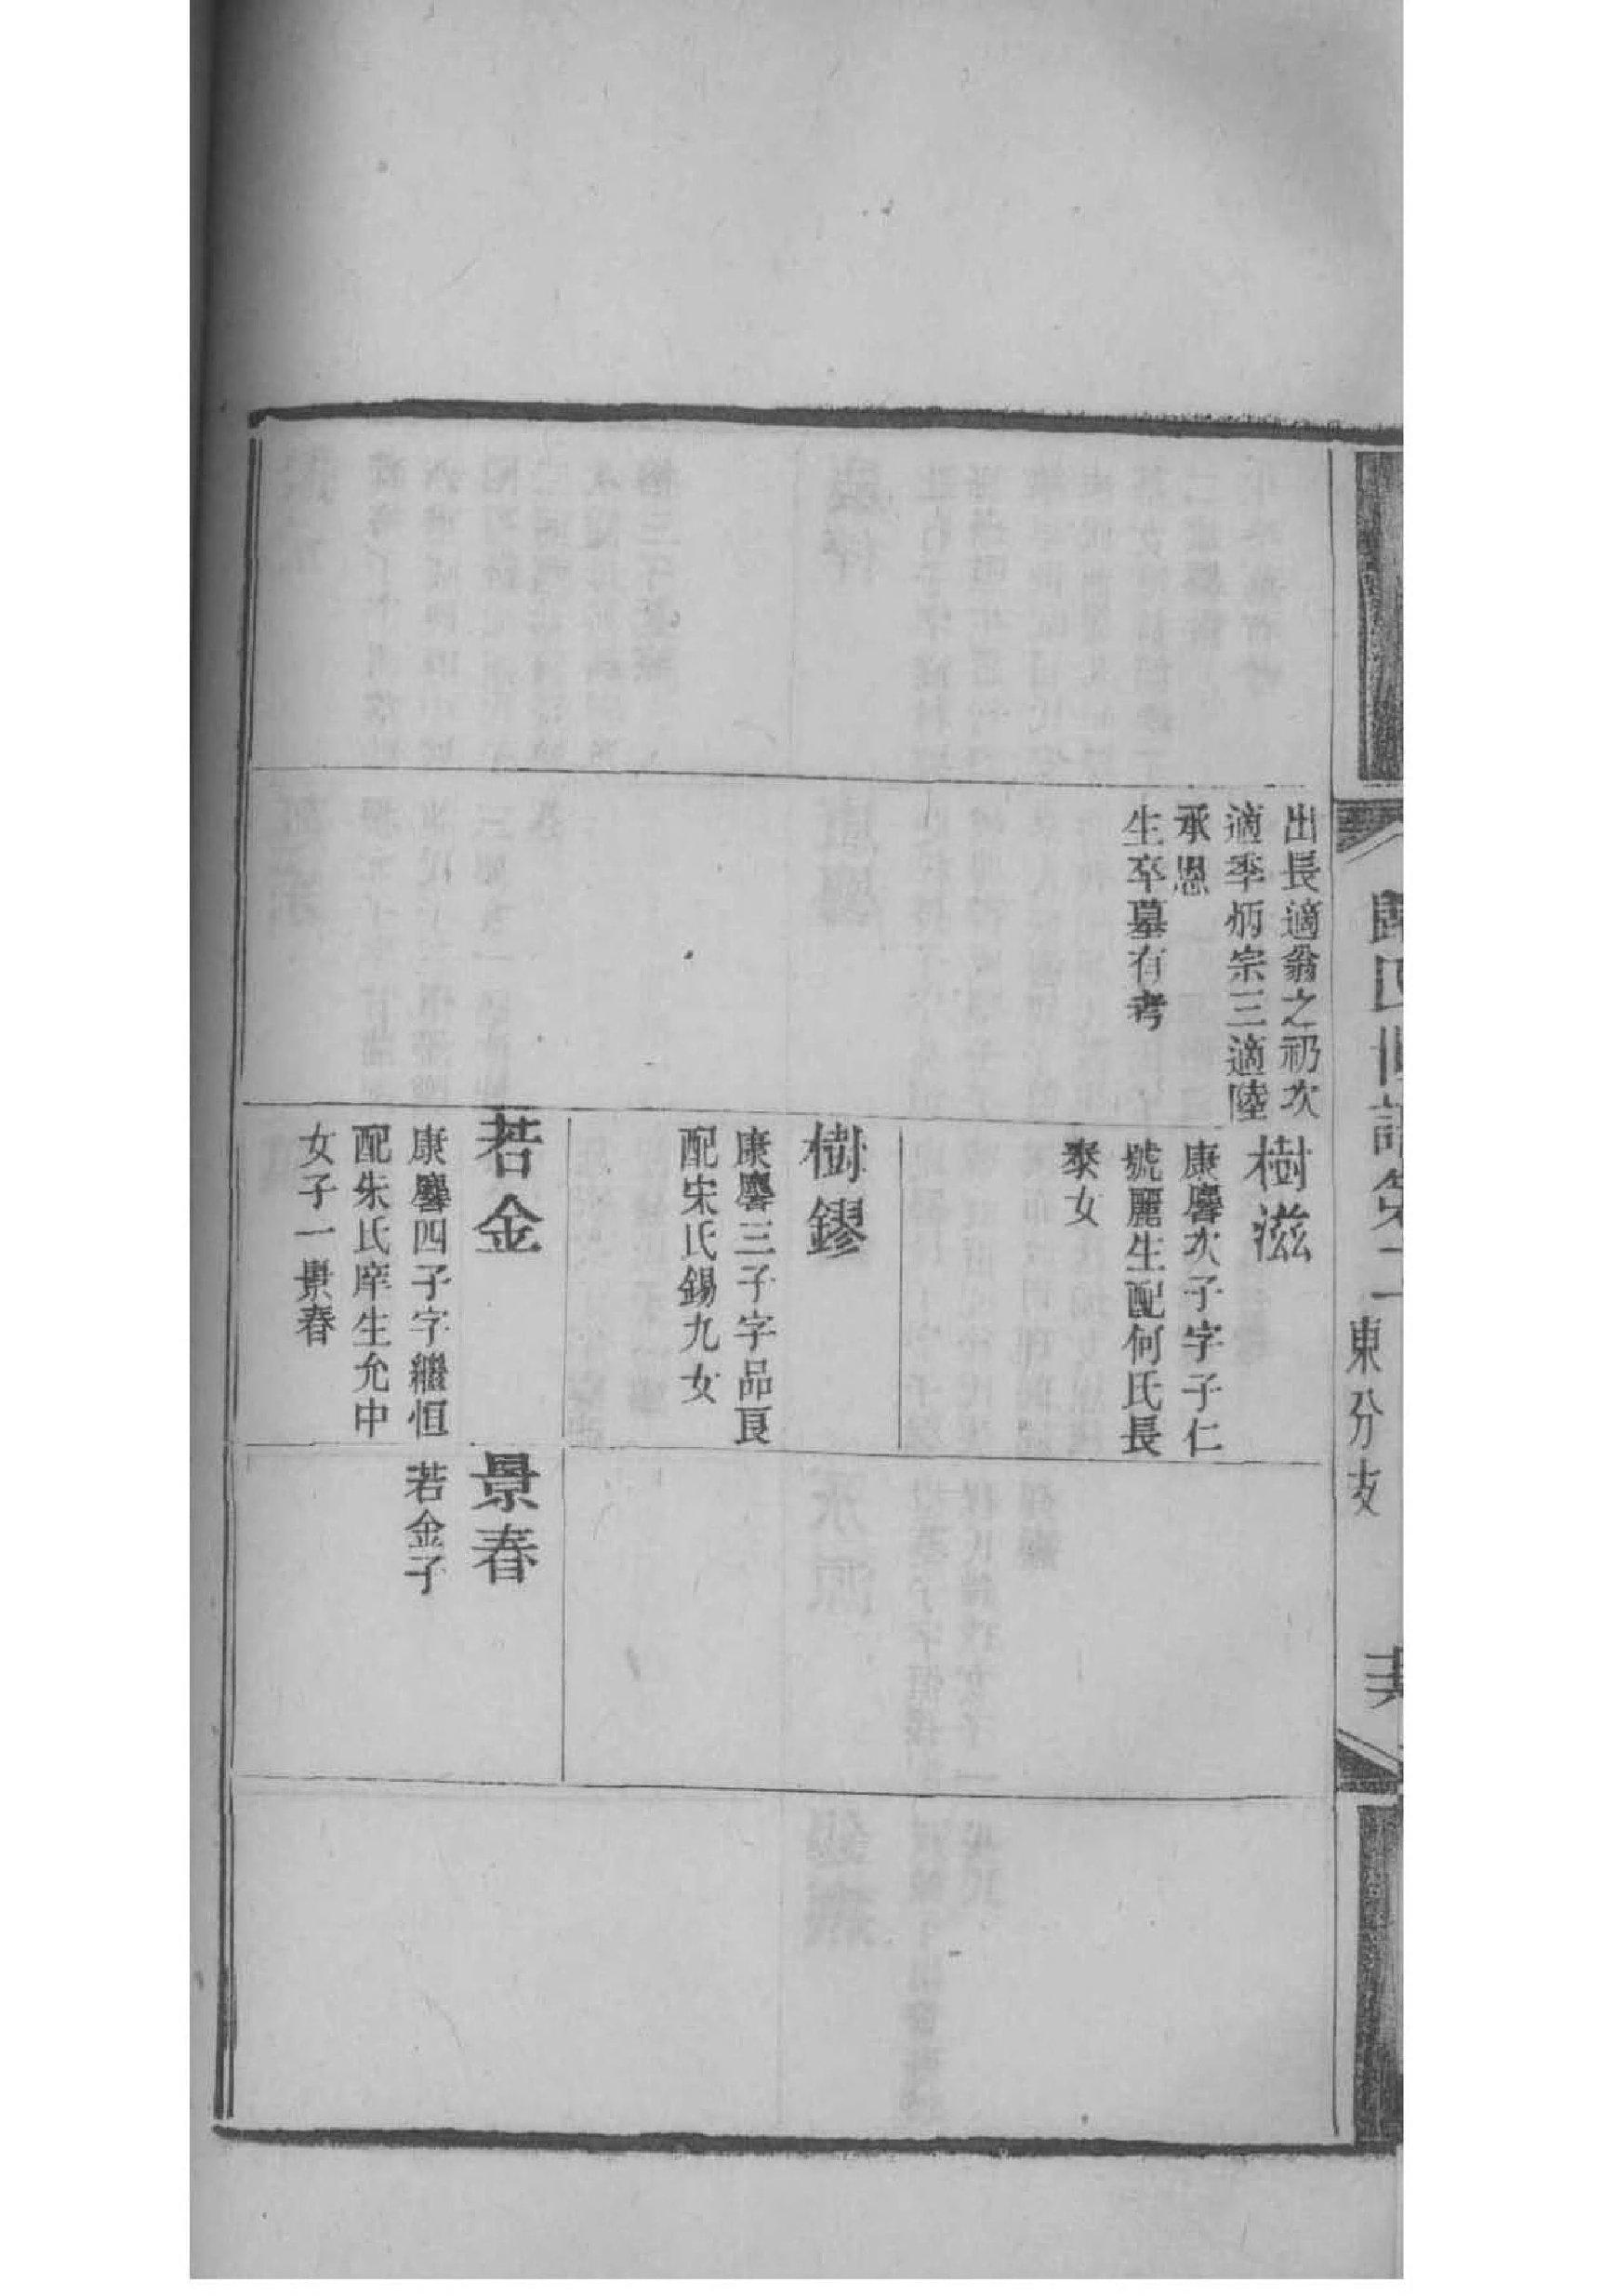 出長適翁之礽次
適季炳宗三適陸
承恩
生卒墓有考
樹滋
康麐次子字子仁
號麗生配何氏長
泰女
樹鏐
康麐三子字品良
配宋氏錫九女
若金
康麐四子字繼恒
配朱氏庠生允中
女子一景春
景春
若金子
東分支